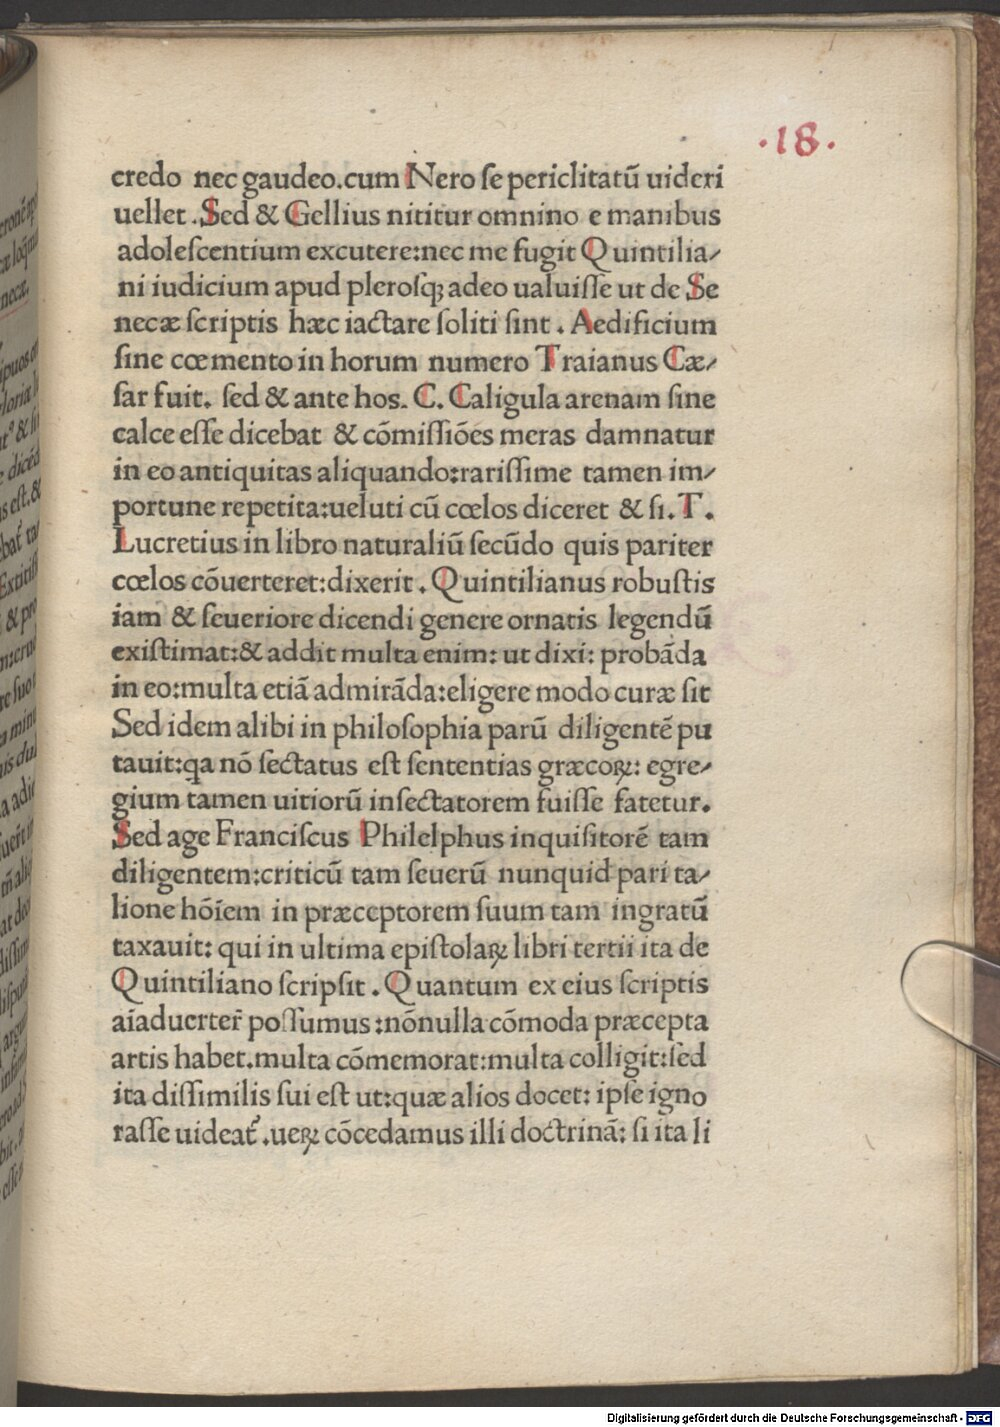 ·18·
credo nec gaudeo.cum Nero se periclitatū uideri
uellet .Sed & Gellius nititur omnino e manibus
adolescentium excutere:nec me fugit Quintilia-
ni iudicium apud plerosqꝫ adeo ualuisse ut de Se
necæ scriptis hæc iactare soliti sint . Aedificium
sine cœmento in horum numero Traianus Cæ-
sar fuit. sed & ante hos. C. Caligula arenam sine
calce esse dicebat & cōmissiōes meras damnatur
in eo antiquitas aliquando:rarissime tamen im-
portune repetita:ueluti cū cœlos diceret & si. T.
Lucretius in libro naturaliū secūdo quis pariter
cœlos cōuerteret:dixerit . Quintilianus robustis
iam & seueriore dicendi genere ornatis legendū
existimat:& addit multa enim: ut dixi: probāda
in eo:multa etiā admirāda:eligere modo curæ sit
Sed idem alibi in philosophia parū diligentē pu
tauit:qa nō sectatus est sententias græcoꝝ: egre-
gium tamen uitiorū insectatorem fuisse fatetur.
Sed age Franciscus Philelphus inquisitorē tam
diligentem:criticū tam seuerū nunquid pari ta-
lione hōīem in præceptorem suum tam ingratū
taxauit: qui in ultima epistolaꝝ libri tertii ita de
Quintiliano scripsit . Quantum ex eius scriptis
aīaduerter̄ possumus :nōnulla cōmoda præcepta
artis habet.multa cōmemorat:multa colligit:sed
ita dissimilis sui est ut:quæ alios docet: ipse igno
rasse uideat᷑ .ueꝝ cōcedamus illi doctrinā: si ita li
Digitalisierung gefördert durch die Deutsche Forschungsgemeinschaft - DFG